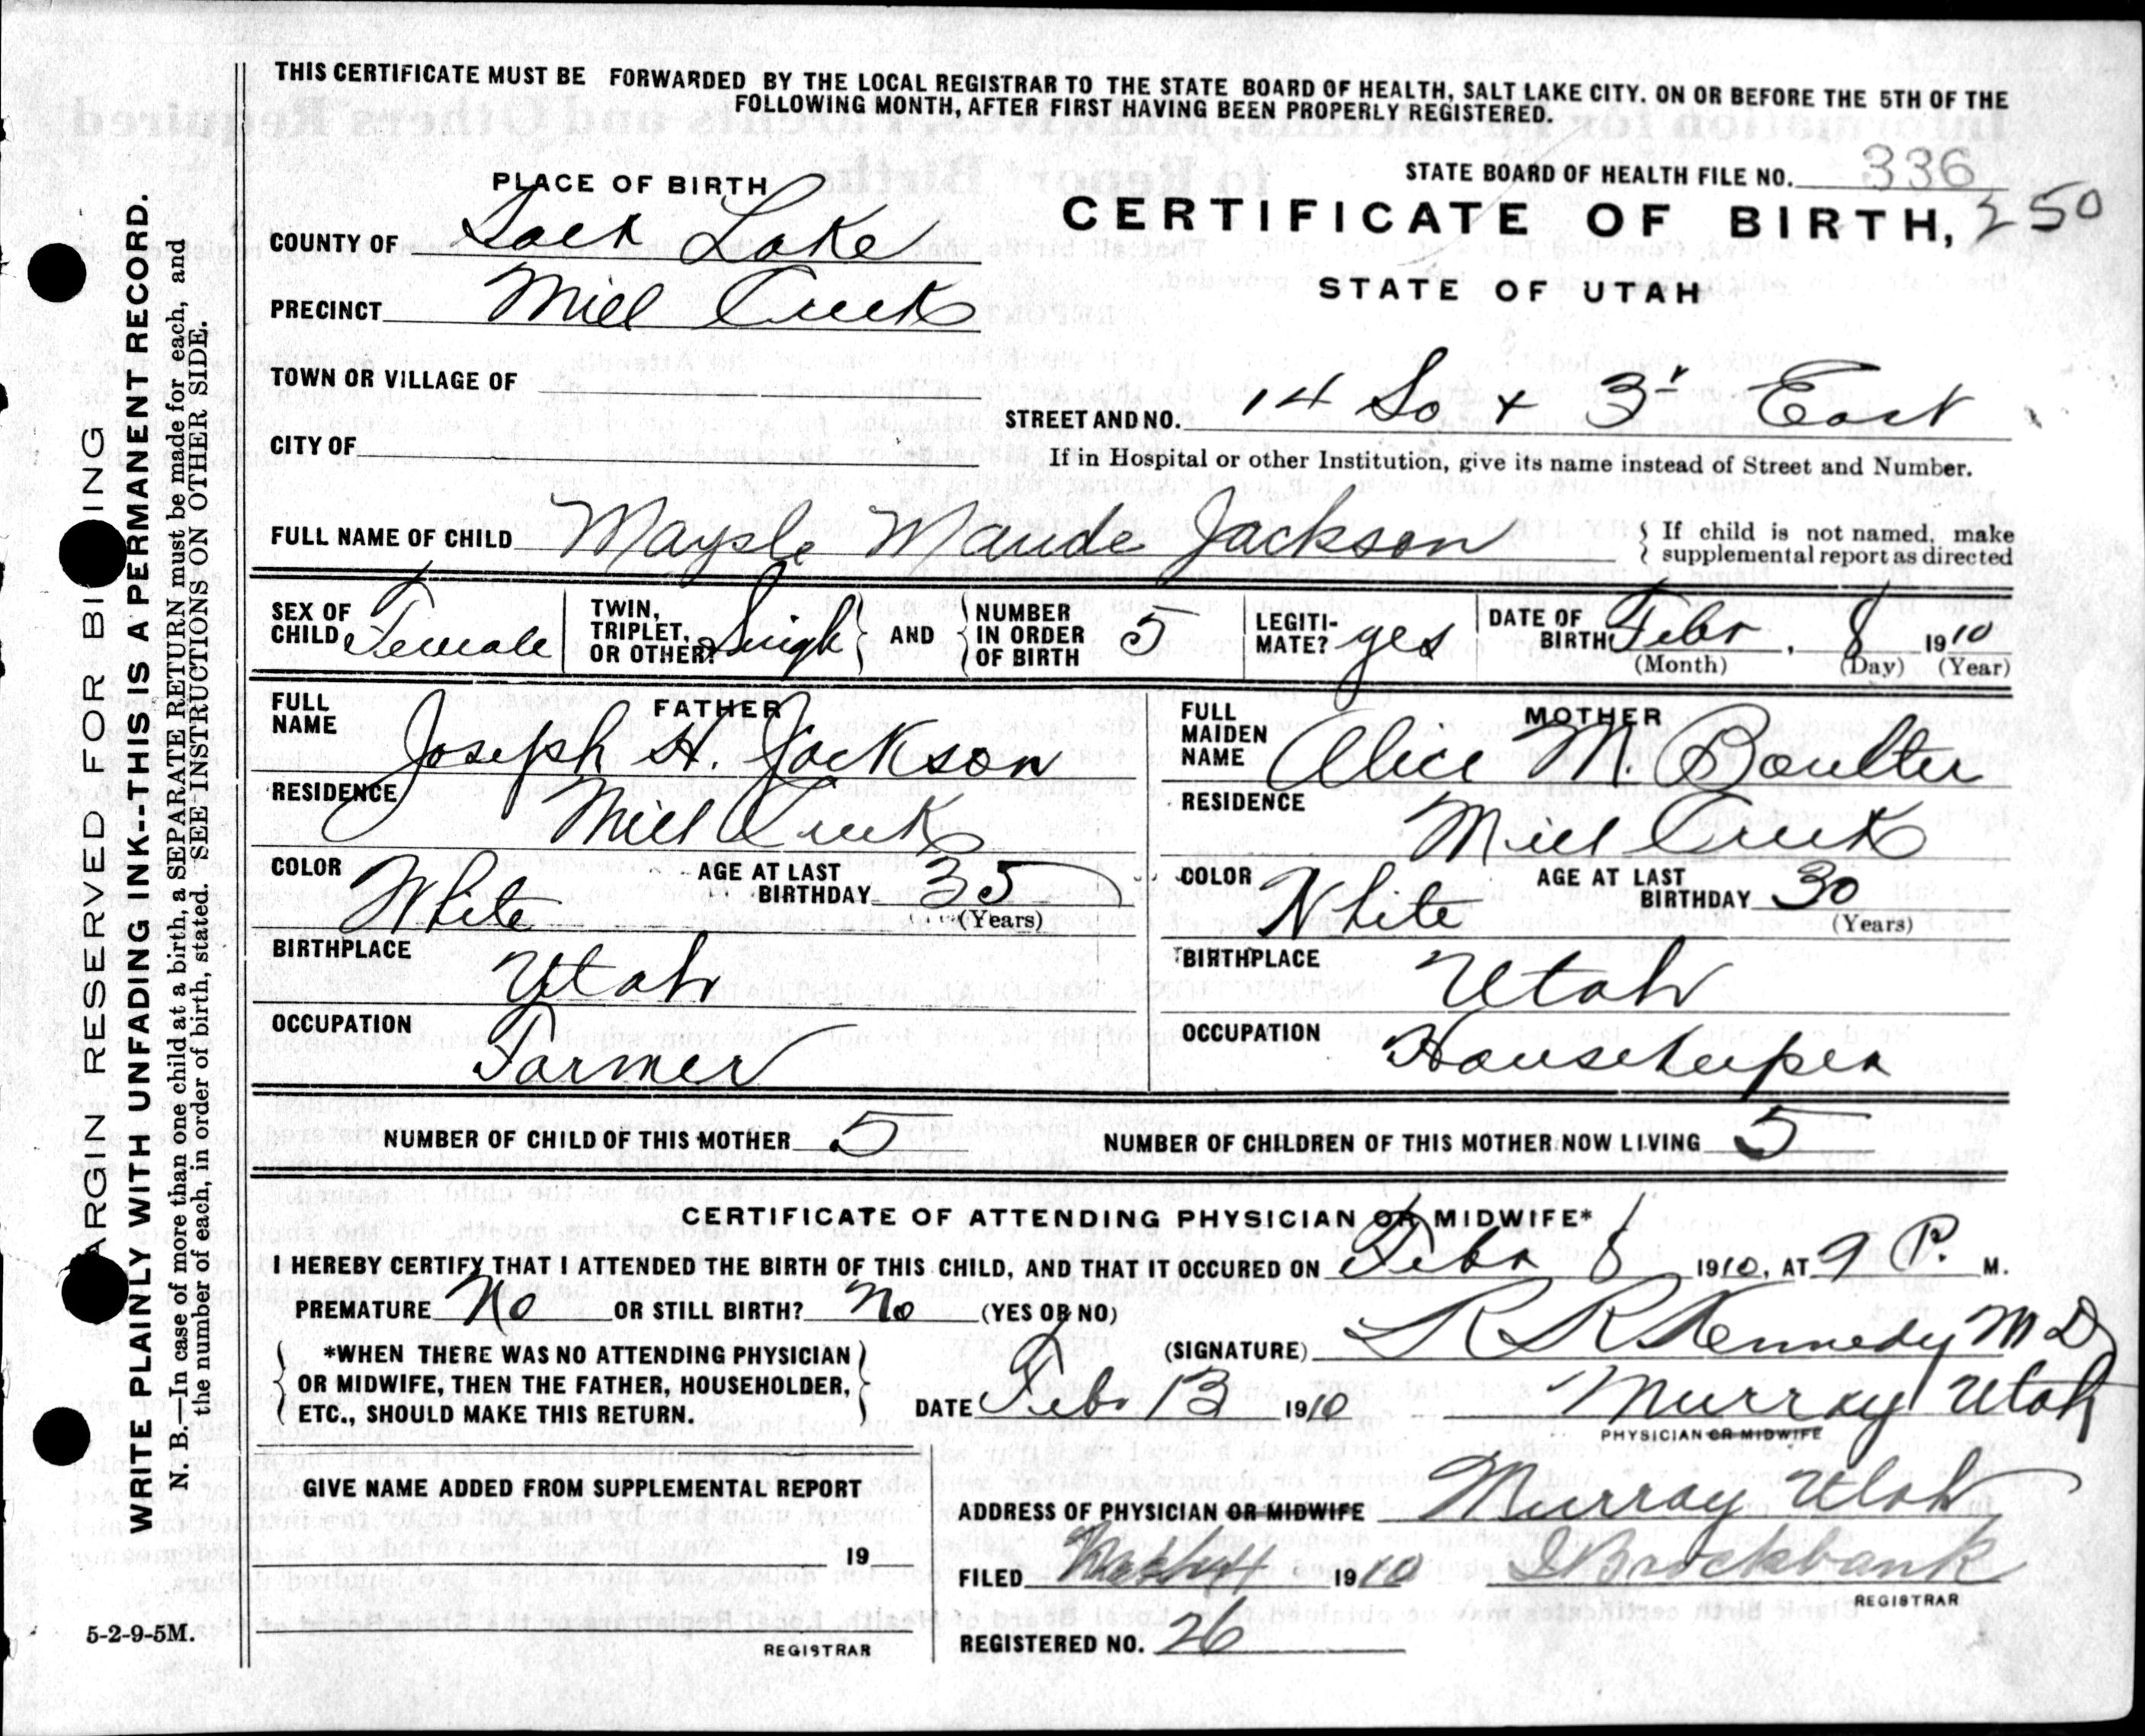 THIS CERTIFICATE MUST BE FORWARDED BY THE LOCAL REGISTRAR TO THE STATE BOARD OF HEALTH, SALT LAKE CITY, ON OR BEFORE THE 5TH OF THE
FOLLOWING MONTH, AFTER FIRST HAVING BEEN PROPERLY REGISTERED.
STATE BOARD OF HEALTH FILE NO. 336
CERTIFICATE OF BIRTH, 250
STATE OF UTAH
PLACE OF BIRTH
COUNTY OF Salt Lake
PRECINCT Mill Creek
TOWN OR VILLAGE OF
CITY OF
STREET AND NO. 14 So + 3d East
If in Hospital or other Institution, give its name instead of Street and Number.
FULL NAME OF CHILD Maysle Maude Jackson
If child is not named, make
supplemental report as directed
SEX OF CHILD Female
TWIN, TRIPLET, OR OTHER? Single
AND
NUMBER IN ORDER OF BIRTH 5
LEGITI-MATE? yes
DATE OF BIRTH Febr. 8 1910
(Month) (Day) (Year)
FATHER
FULL NAME Joseph H. Jackson
RESIDENCE Mill Creek
COLOR White AGE AT LAST BIRTHDAY 35
(Years)
BIRTHPLACE Utah
OCCUPATION Farmer
MOTHER
FULL MAIDEN NAME Alice M. Boulter
RESIDENCE Mill Creek
COLOR White AGE AT LAST BIRTHDAY 30
(Years)
BIRTHPLACE Utah
OCCUPATION Housekeeper
NUMBER OF CHILD OF THIS MOTHER 5 NUMBER OF CHILDREN OF THIS MOTHER NOW LIVING 5
CERTIFICATE OF ATTENDING PHYSICIAN OR MIDWIFE*
I HEREBY CERTIFY THAT I ATTENDED THE BIRTH OF THIS CHILD, AND THAT IT OCCURED ON Febr 8 1910, AT 9 P. M.
PREMATURE No OR STILL BIRTH? No (YES OR NO)
*WHEN THERE WAS NO ATTENDING PHYSICIAN
OR MIDWIFE, THEN THE FATHER, HOUSEHOLDER,
ETC., SHOULD MAKE THIS RETURN.
(SIGNATURE) R R Kennedy M D
DATE Feb. 13 1910 Murray Utah
PHYSICIAN OR MIDWIFE
GIVE NAME ADDED FROM SUPPLEMENTAL REPORT
19
REGISTRAR
ADDRESS OF PHYSICIAN OR MIDWIFE Murray Utah
FILED 1910 Brockbank
REGISTRAR
REGISTERED NO. 26
5-2-9-5M.
ARGIN RESERVED FOR BI ING
WRITE PLAINLY WITH UNFADING INK--THIS IS A PERMANENT RECORD.
N. B.—In case of more than one child at a birth, a SEPARATE RETURN must be made for each, and
the number of each, in order of birth, stated. SEE INSTRUCTIONS ON OTHER SIDE.